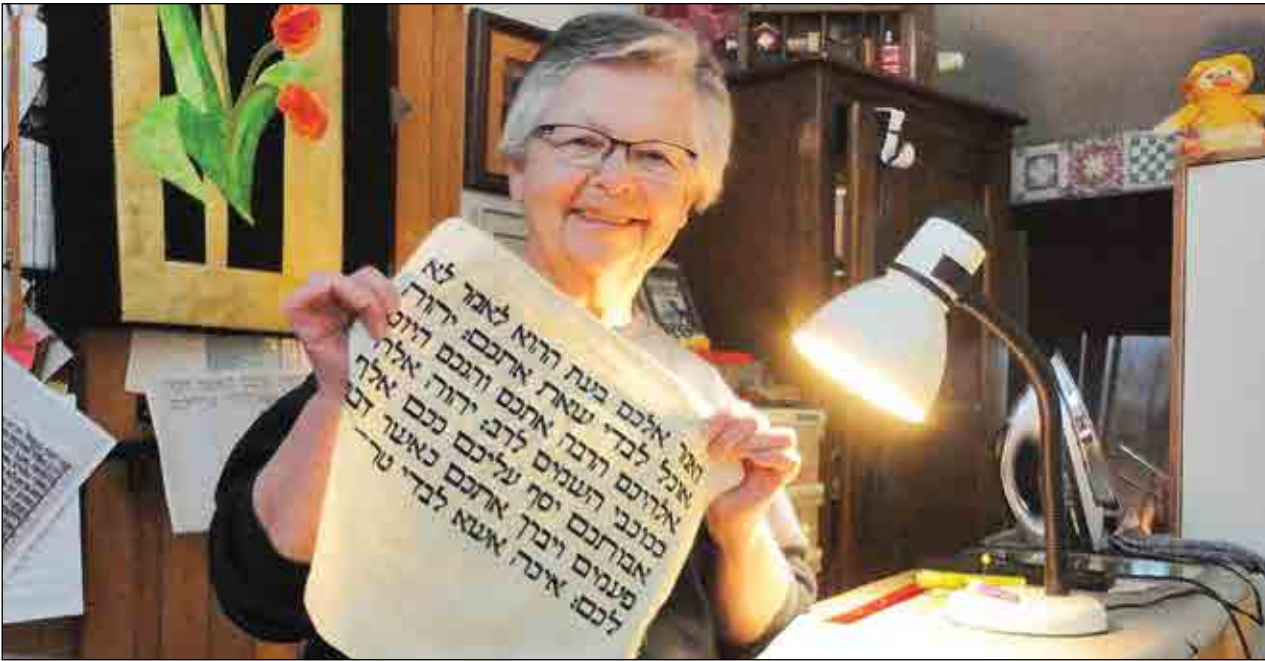 ואמר אלכם בעת ההוא לאמר לא
אוכל לבדי שאת אתכם: יהוה
אלהיכם הרבה אתכם והנכם היום
ככוכבי השמים לרב: יהוה אלהי
אבותכם יסף עליכם ככם אלף
פעמים ויברך אתכם כאשר דבר
לכם: איכה אשא לבדי טר-